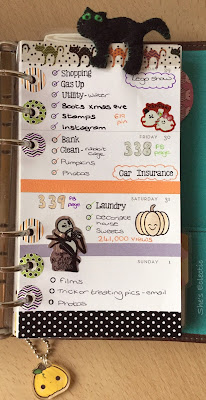 Shopping
Lego Show
Gas Up
Utility-water
Boots xmas eve
Stamps
Instagram
Bank
FRIDAY 30
Clean -
338
FB page
Pumpkins
Photos
Car Insurance
339
FB page
SATURDAY 31
Laundry
Decorate house
Sweets
261,000 views
SUNDAY 1
Films
Trick or treating pics - email
Photos
She's Eclectic